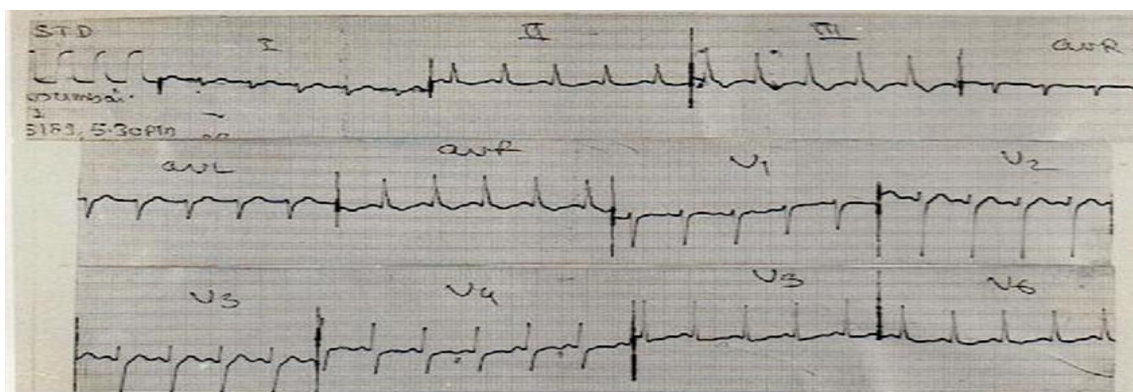 STD
I
II
III
avR
5.30pm
avL
avf
V1
V2
V3
V4
V5
V6